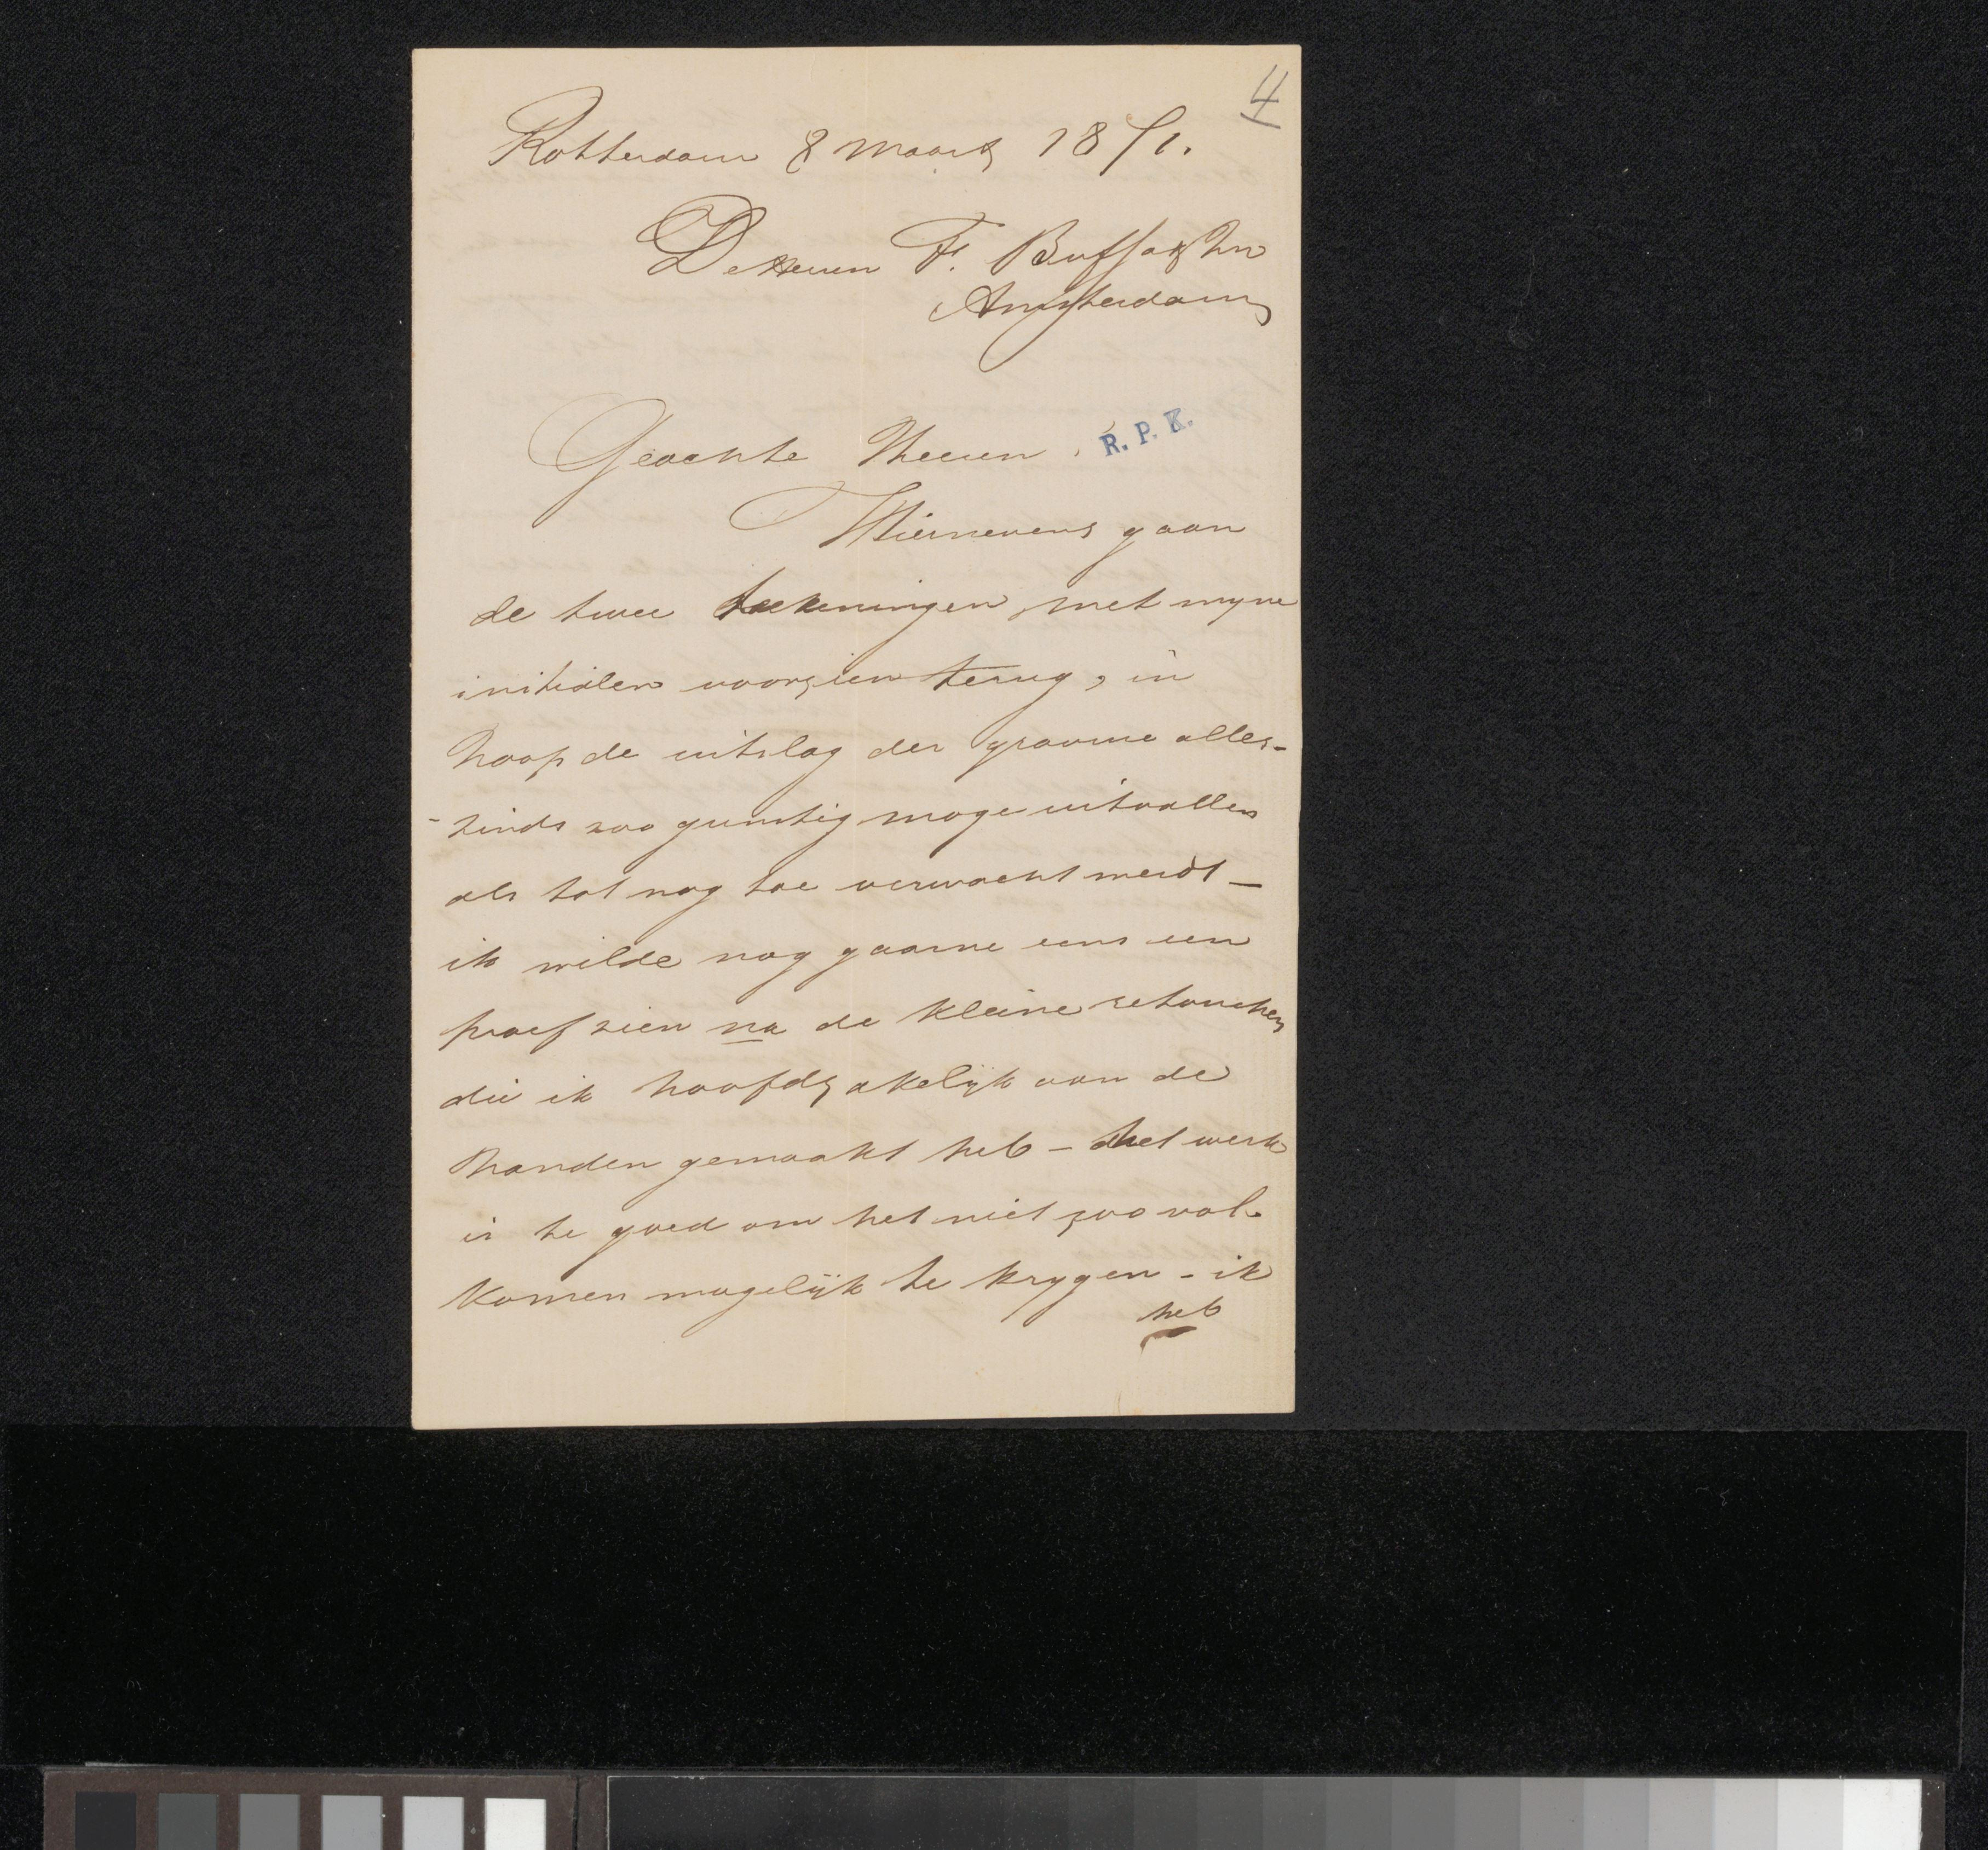 4
Rotterdam 8 Maart 1871.
De Heeren F. Buffa & Zn
Amsterdam
Geachte Heeren,
R. P. K.
Hiernevens gaan
de twee teekeningen, met myne
initialen voorzien terug, in
hoop de uitslag der gravure alles-
-zinds zoo gunstig moge uitvallen
als tot nog toe verwacht werdt _
ik wilde nog gaarne eens een
proef zien na de kleine retouches
die ik hoofdzakelijk aan de
handen gemaakt heb - het werk
is te goed om het niet zoo vol-
komen mogelijk te krygen - ik
heb